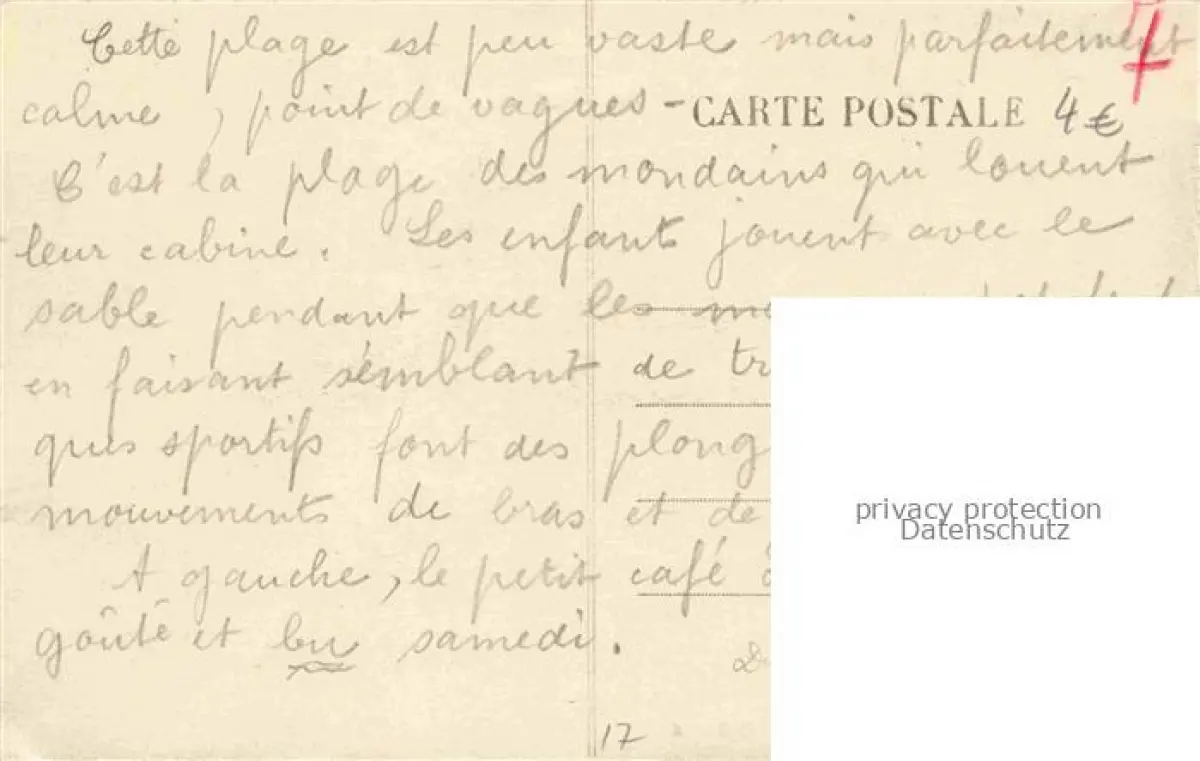 Cette plage est peu vaste mais parfaitement
calme, point de vagues -
CARTE POSTALE
4 €
C'est la plage des mondains qui louent
leur cabine. Les enfants jouent avec le
sable pendant que les
en faisant semblant de
ques sportifs font des
mouvements de bras et de
A gauche, le petit café
goûté et bu samedi.
17
privacy protection
Datenschutz